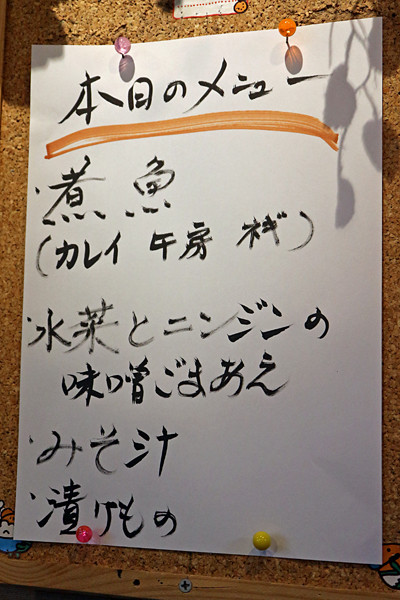 本日のメニュー
・煮魚
(カレイ 午房 ネギ)
・水菜とニンジンの
味噌ごまあえ
・みそ汁
・漬けもの